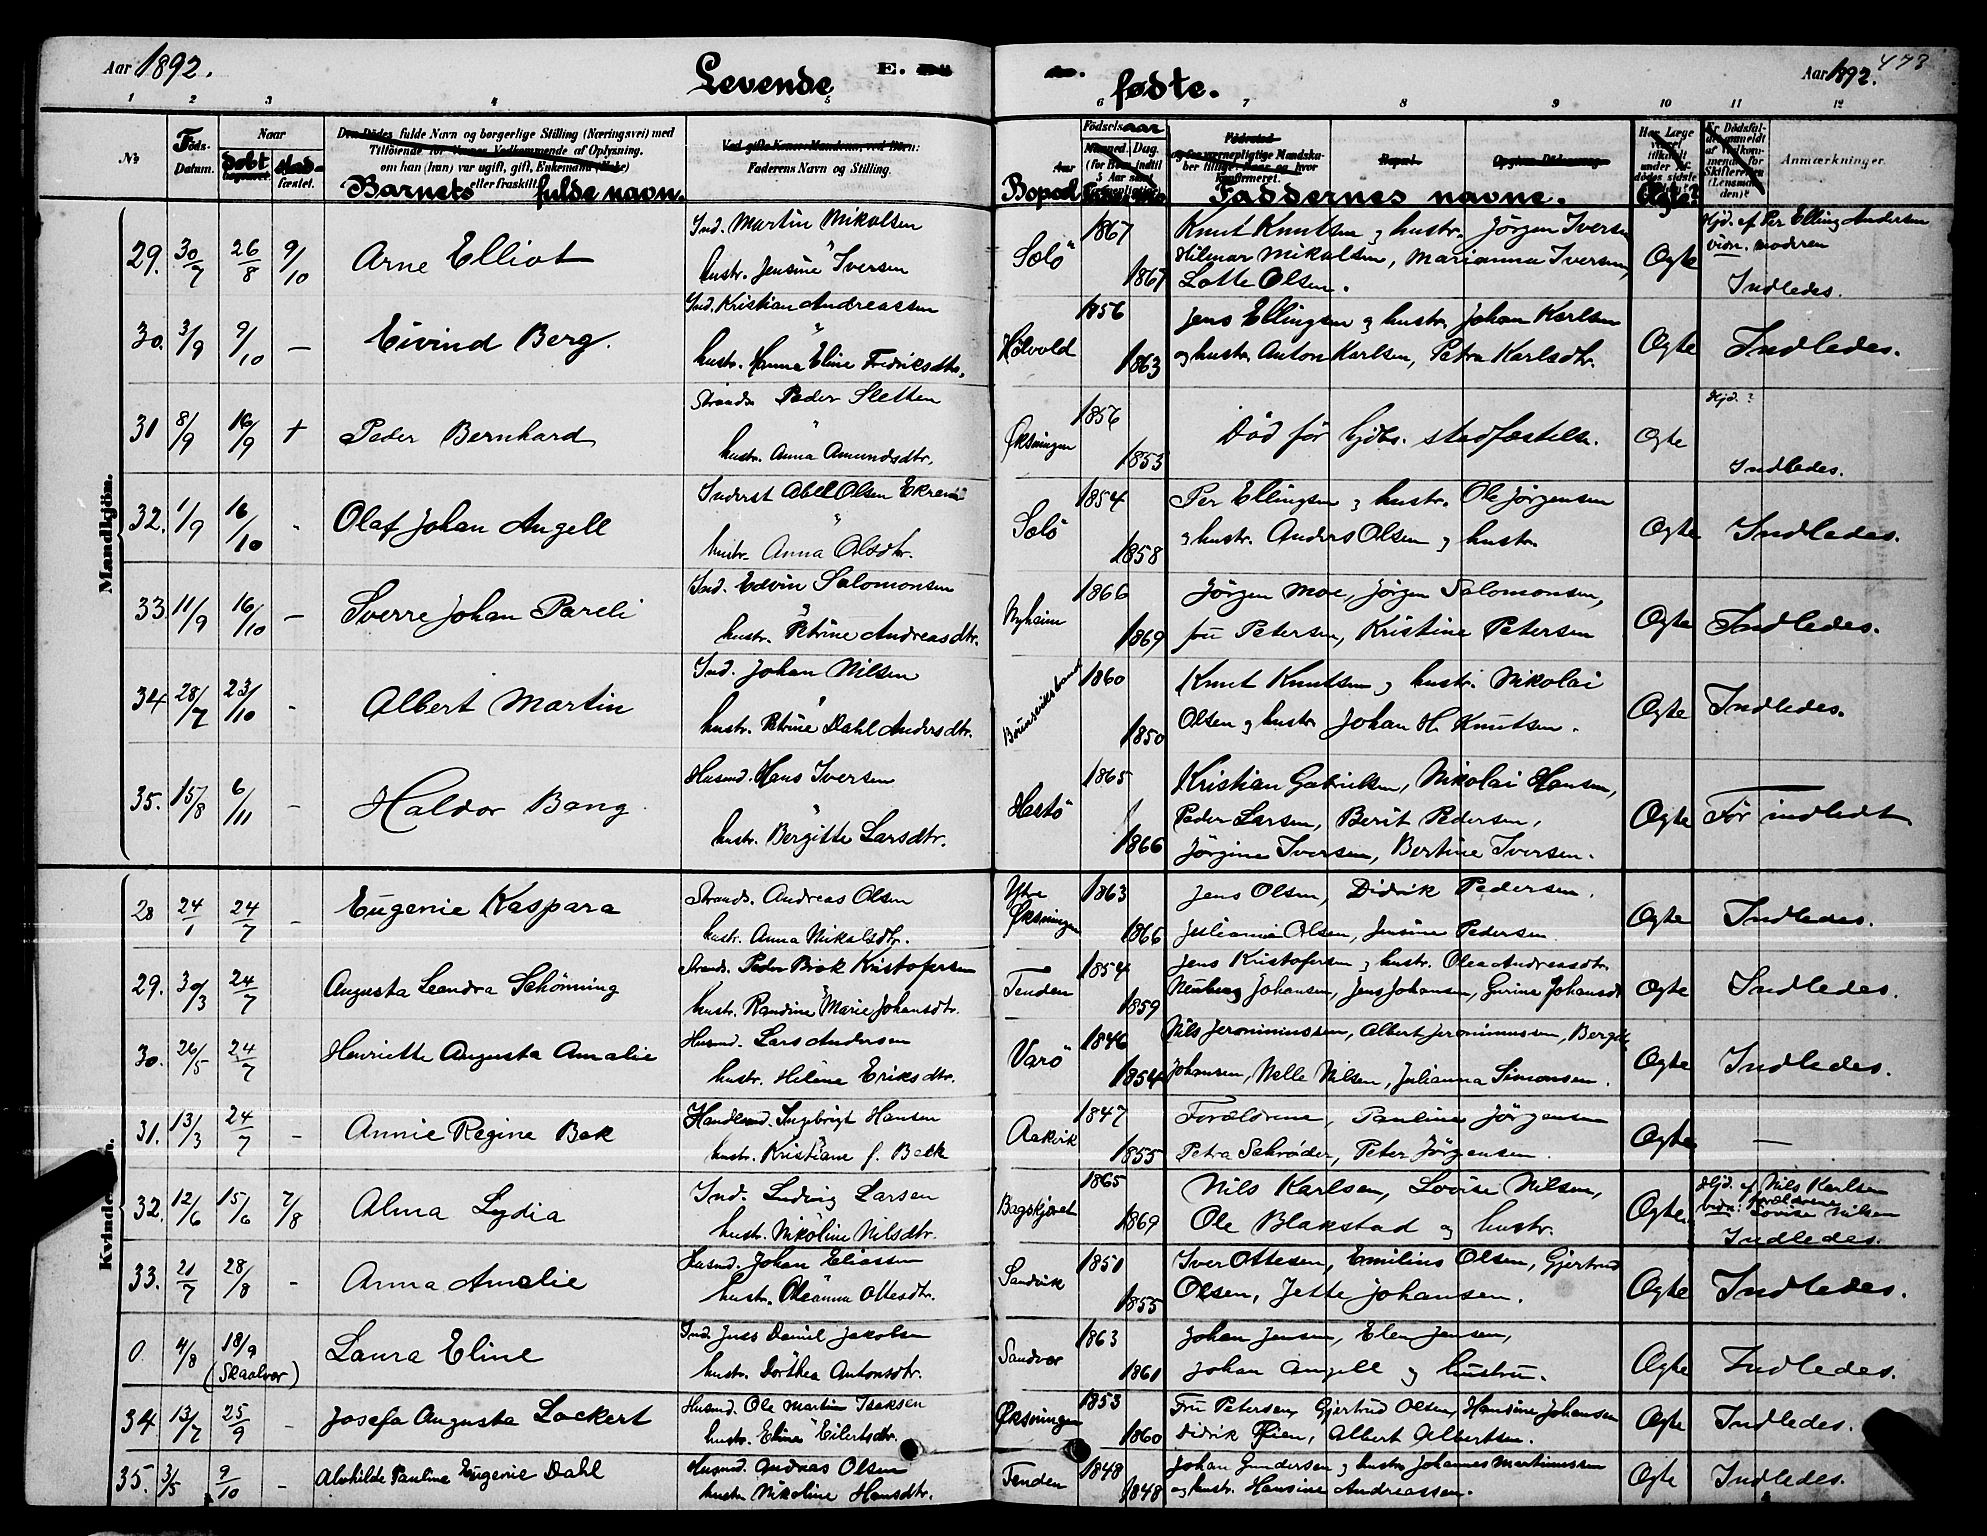 Aar 1892.
Levende
E.
fødte.
Aar 1892. 473
1 2 3 4 5 6 7 8 9 10 11 12
No Føds- Datum. Naar Døbt Stadfæstet.
Den Dødes fulde Navn og borgerlige Stilling (Næringsvei) med
Tilføiende for Vornes Vedkommende af Oplysning,
om han (hun) var ugift, gift, Enkemand (Enke)
eller fraskilt.
Barnets fulde navn.
Faderens Navn og Stilling.
Boped
Fødselsaar
Faddernes navne.
Ægte?
Anmærkninger.
Mandkjøn.
29. 30/7 26/8 9/10 Arne Elliot Ind. Martin Mikalsen Solö 1867 Knut Knutsen & hustr. Jörgen Iversen Ægte Hjd. af Per Elling Andersen
vidn. modren
hustr. Jensine Iversen 1867 Hilmar Mikalsen, Marianna Iversen,
Lotte Olsen. Indledes.
30. 3/9 9/10 — Eivind Berg. Ind. Kristian Andreassen Holvold 1856 Jens Ellingsen & hustr. Johan Karlsen Ægte Indledes.
hustr. Hanna Eline Fredriksdtr. 1863 og hustr. Anton Karlsen, Petra Karlsdtr.
31 8/9 16/9 + Peder Bernhard Strands. Peder Sletten Øksningen 1856 Död för hjdbs. stadfæstelse. Ægte Hjd. ?
hustr. Anna Amundsdtr. 1853 Indledes.
32. 1/9 16/10 - Olaf Johan Angell Inderst Abel Olsen Solö 1854 Per Ellingsen & hustr. Ole Jörgensen Ægte Indledes.
hustr. Anna Olsdtr. 1858 & hustr. Anders Olsen & hustr.
33 11/9 16/10 — Sverre Johan Pareli Ind. Edvin Salomonsen Byheim 1866 Jörgen Moe, Jörgen Salomonsen, Ægte Indledes.
hustr. Petrine Andreasdtr. 1869 fru Petersen, Kristine Petersen
34 28/7 23/10 - Albert Martin Ind. Johan Nilsen 1860 Knut Knutsen & hustr. Nikolai Ægte Indledes.
hustr. Petrine Dahl Andersdtr. 1850 Olsen & hustr. Johan H. Knutsen.
35. 15/8 6/11 - Haldor Bang. Husmd. Hans Iversen Hestö 1865 Kristian Gabrielsen, Nikolai Hansen, Ægte Før indledt
hustr. Bergitte Larsdtr. 1866 Peder Larsen, Berit Pedersen,
Jörgine Iversen, Bertine Iversen.
28 24/1 24/7 - Eugenie Kaspara Strands. Andreas Olsen Ytre Øksningen 1863 Jens Olsen, Didrik Pedersen. Ægte Indledes.
hustr. Anna Nikolsdtr. 1866 Julianna Olsen, Jensine Pedersen.
29. 30/3 24/7 Augusta Leandra Schönning Strands. Peder Brok Kristofersen Tenden 1854 Jens Kristofersen & hustr. Olea Andreasdtr. Ægte Indledes.
hustr. Randine Marie Johansdtr. 1859 Nenberg Johansen, Jens Johansen, Gurine Johansdt
30. 26/5 24/7 Henriette Augusta Amalie Husmd. Lars Andersen Varö 1846 Nils Jeronimussen, Albert Jeronimussen, Bergitte Ægte Indledes.
hustr. Helene Eriksdtr. 1854 Johansen, Nelle Nilsen, Julianna Simonsen.
31. 13/3 24/7 - Annie Regine Bek Handlsmd. Ingebrigt Hansen Aakvik 1847 Forældrene, Pauline Jörgensen Ægte —
hustr. Kristiane f. Beck 1855 Petra Schröder, Peter Jörgensen.
32. 12/6 15/6 7/8 Alma Lydia Ind. Ludvig Larsen 1865 Nils Karlsen, Lovise Nilsen, Ægte Hjd. af Nils Karlsen
vidn. forældrene Lovise Nilsen
hustr. Nikoline Nilsdtr. 1869 Ole Blakstad & hustr. Indledes.
33. 21/7 28/8 - Anna Amalie Husmd. Johan Eliassen Sandvik 1851 Iver Ottesen, Emilius Olsen, Gjertrud Ægte Indledes.
hustr. Oleanna Ottesdtr. 1855 Olsen, Jette Johansen.
0. 4/8 18/9 (Skaalvær) Laura Eline Ind. Jens Daniel Jakobsen Sandvær 1863 Johan Jensen, Elen Jensen, Ægte Indledes.
hustr. Dorthea Antonsdtr. 1861 Johan Angell & hustru.
34 13/7 25/9 - Josefa Augusta Lockert Husmd. Ole Martin Isaksen Øksningen 1853 Fru Petersen, Gjertrud Olsen, Hansine Johansen Ægte Indledes.
hustr. Eline Eilertsdtr. 1860 Didrik Øien, Albert Albertsen.
35. 3/5 9/10 - Alvhilde Pauline Eugenie Dahl Husmd. Andreas Olsen Tenden 1848 Johan Gundersen & hustr. Johannes Martinussen Ægte Indledes.
hustr. Nikoline Hansdtr. 1848 og hustr. Hansine Andreassen.